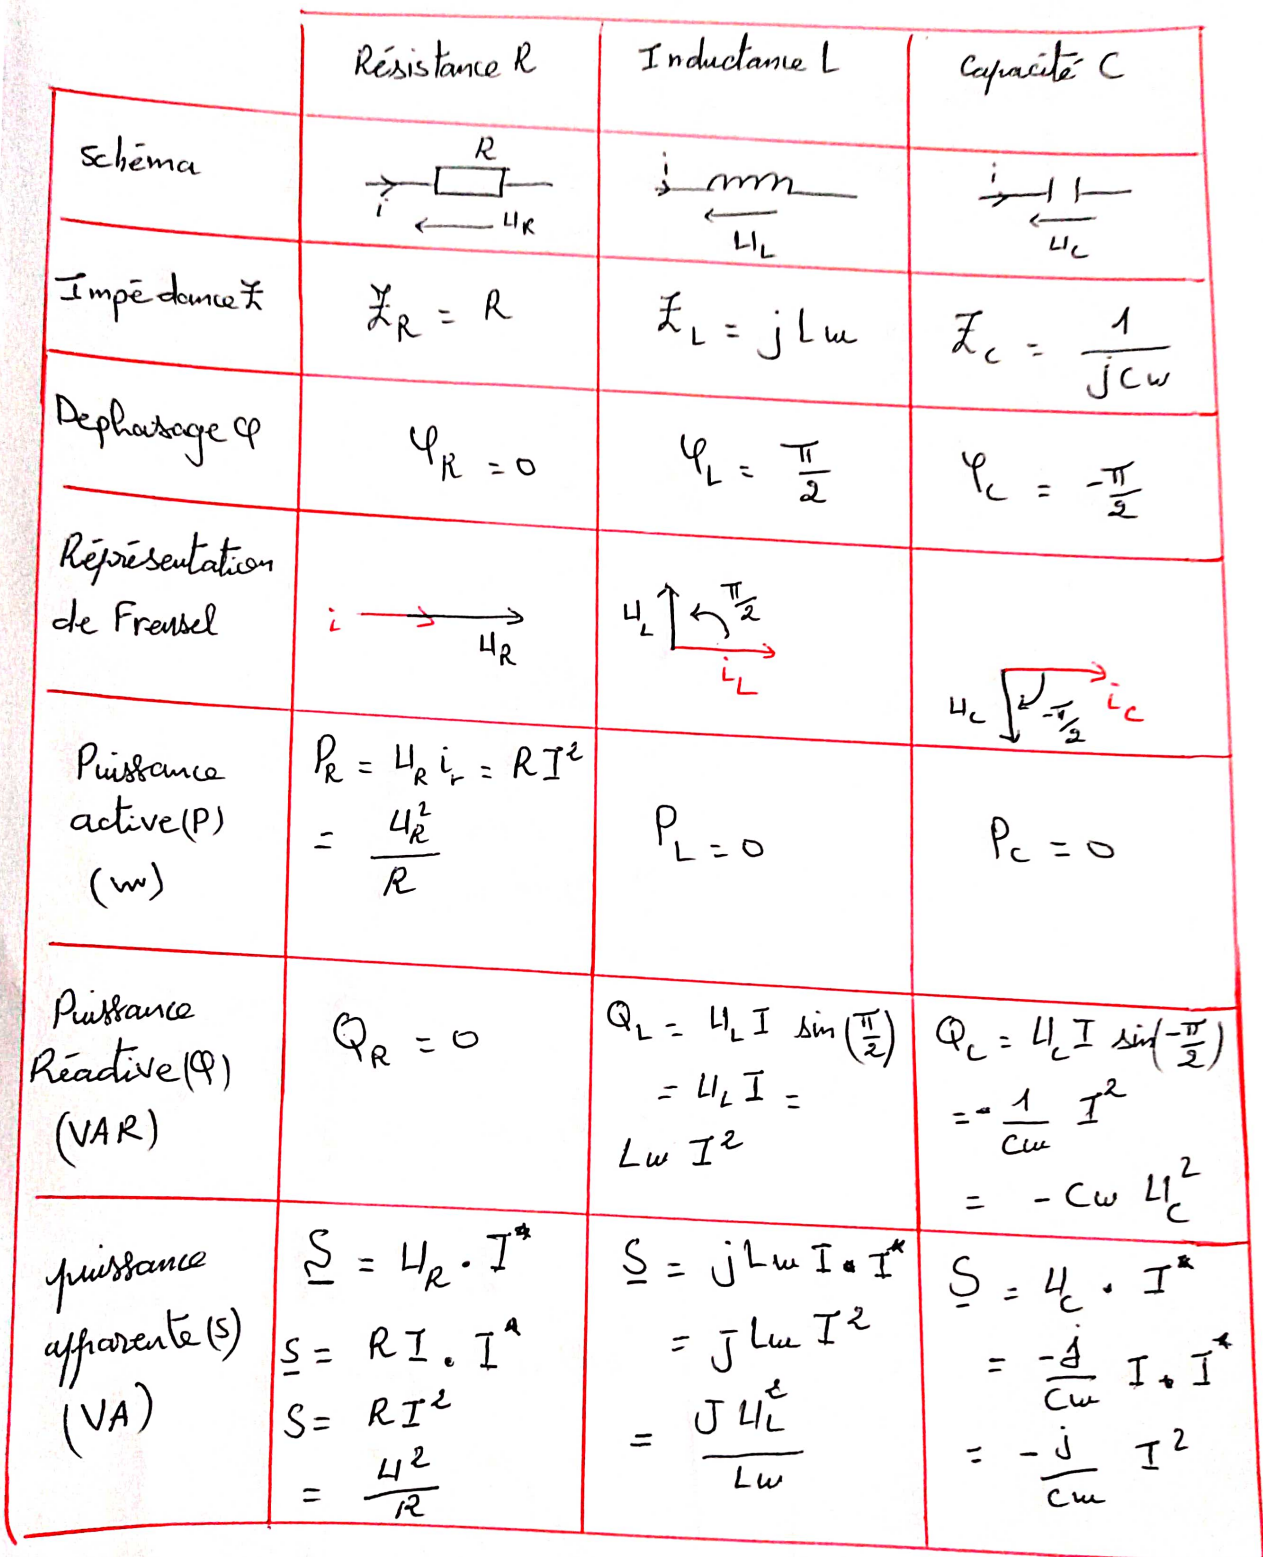 Résistance R Inductance L Capacité C
Schéma
R
i
U_R
i
U_L
i
U_C
Impédance Z
Z_R = R
Z_L = jLω
Z_C = 1/(jCω)
Dephasage φ
φ_R = 0
φ_L = π/2
φ_C = -π/2
Réprésentation
de Frensel
i
U_R
U_L
π/2
i_L
U_C
-π/2
i_C
Puissance
active(P)
(w)
P_R = U_R i_r = RI²
= U_R²/R
P_L = 0
P_C = 0
Puissance
Réactive(Q)
(VAR)
Q_R = 0
Q_L = U_L I sin(π/2)
= U_L I =
Lω I²
Q_C = U_C I sin(-π/2)
= - 1/(Cω) I²
= - Cω U_C²
puissance
apparente(s)
(VA)
S = U_R . I*
S = RI . I*
S = RI²
= U²/R
S = jLω I . I*
= jLω I²
= J U_L²/(Lω)
S = U_C . I*
= -j/(Cω) I . I*
= -j/(Cω) I²